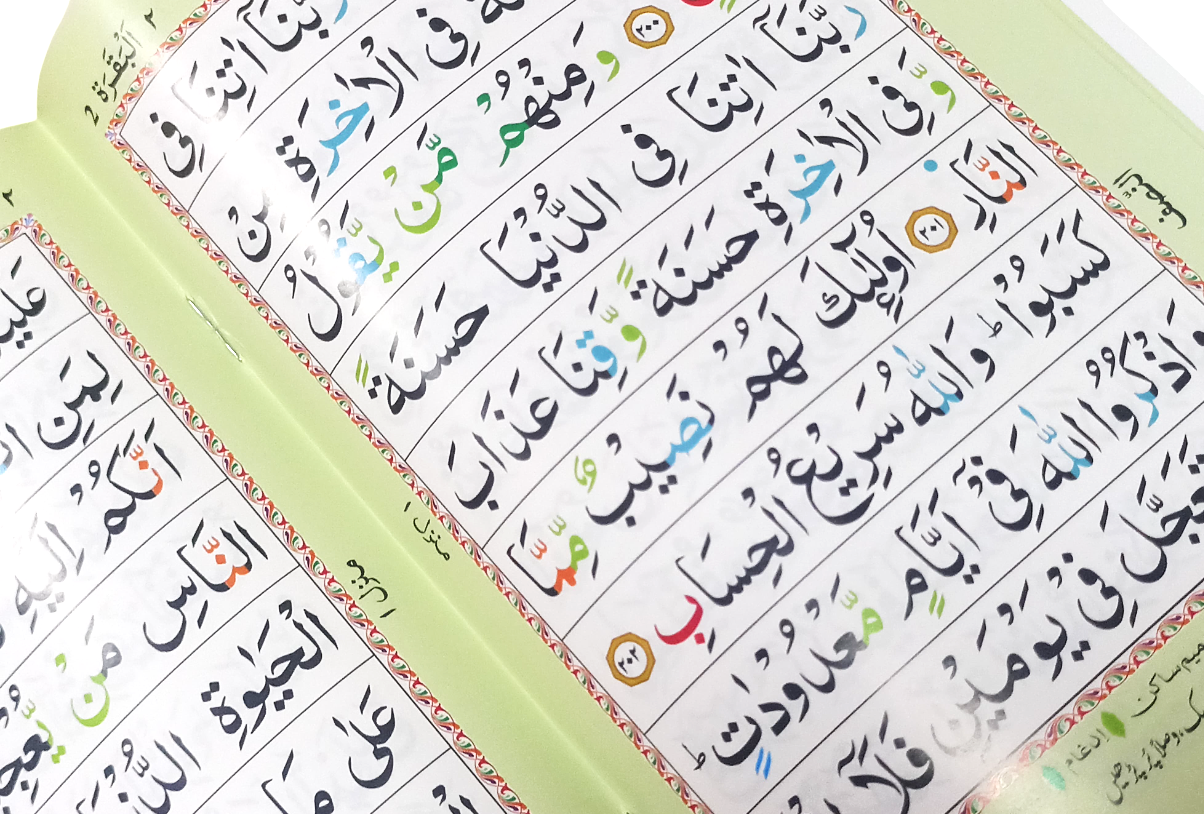 اَلْبَقَرَة ٢
رَبَّنَآ اٰتِنَا فِى
فِى الْاٰخِرَةِ مِنْ
٢٠٠ وَمِنْهُمْ مَّنْ يَّقُوْلُ
رَبَّنَآ اٰتِنَا فِى الدُّنْيَا حَسَنَةً
وَّفِى الْاٰخِرَةِ حَسَنَةً وَّقِنَا عَذَابَ
النَّارِ ٢٠١ اُولٰٓئِكَ لَهُمْ نَصِيْبٌ مِّمَّا
كَسَبُوْا ط وَاللّٰهُ سَرِيْعُ الْحِسَابِ ٢٠٢
وَاذْكُرُوا اللّٰهَ فِىْٓ اَيَّامٍ مَّعْدُوْدٰتٍ ط
تَعَجَّلَ فِىْ يَوْمَيْنِ فَلَآ
النصف
منزل ١
میم ساکن
ادغام
2
٢
لِمَنِ
اَنَّكُمْ اِلَيْهِ
النَّاسِ مَنْ يُّعْجِ
الْحَيٰوةِ الدُّنْ
عَلٰى مَا
منزل ١